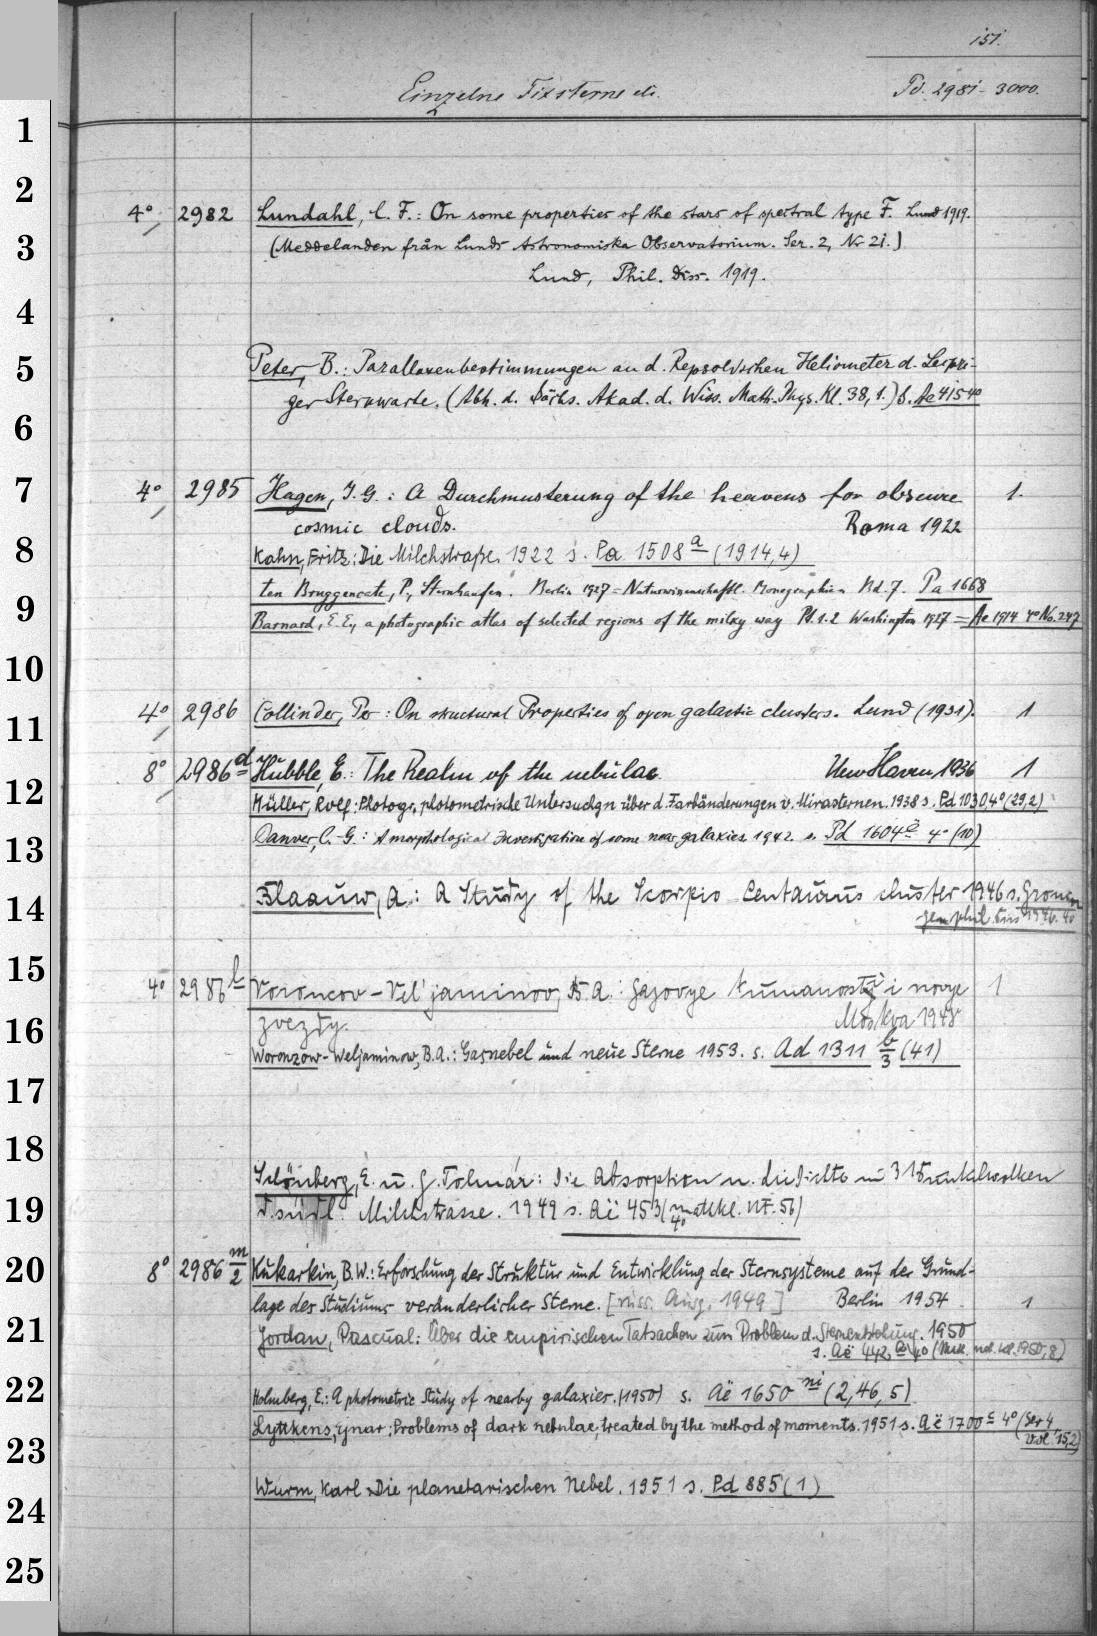 151.
Einzelne Fixsterne etc. Pd. 2981-3000.
1
2
4° 2982 Lundahl, C. F.: On some properties of the stars of spectral type F. Lund 1919.
3 (Meddelanden från Lunds Astronomiska Observatorium. Ser. 2, Nr 21.)
Lund, Phil. Diss. 1919.
4
5 Peter, B.: Parallaxenbestimmungen an d. Repsoldschen Heliometer d. Leipzi-
ger Sternwarte. (Abh. d. Sächs. Akad. d. Wiss. Math.-Phys. Kl. 38, 1.) S. Ae 415 4°
6
7 4° 2985 Hagen, J. G.: A Durchmusterung of the heavens for obscure 1.
cosmic clouds. Roma 1922
8 Kahn, Fritz: Die Milchstraße. 1922 s. Pa 1508a (1914,4)
ten Bruggencate, P., Sternhaufen. Berlin 1927 = Naturwissenschaftl. Monographien Bd. 7. Pa 1668
9 Barnard, E. E., a photographic atlas of selected regions of the milky way Pt. 1.2 Washington 1927 = Ae 1914 4° No. 247
10
11 4° 2986 Collinder, Per: On structural Properties of open galactic clusters. Lund (1931). 1
8° 2986d Hubble, E.: The Realm of the nebulae. New Haven 1936 1
12 Müller, Rolf: Photogr. photometrische Untersuchgn über d. Farbänderungen v. Mirasternen. 1938 s. Pd 1030, 4° (29,2)
13 Danver, C.-G.: A morphological Investigation of some near galaxies 1942. s. Pd 1604e 4° (10)
14 Blaauw, A.: A Study of the Scorpio Centaurus cluster 1946 s. Gronin
gen phil. Diss 1946. 4°
15 4° 2986h Voroncov-Vel'jaminov, B. A.: Gazovye tumanosti i novye 1
16 zvezdy. Moskva 1948
Woronzow-Weljaminow, B. A.: Gasnebel und neue Sterne 1953. s. Ad 1311 b/3 (41)
17
18 Schönberg, E. u. J. Tolmár: Die Absorption u. die Dichte in 31 Dunkelwolken
19 d. südl. Milchstrasse. 1949 s. Aë 453 (mathkl. NF. 56)
4°
20 8° 2986 m/2 Kukarkin, B. W.: Erforschung der Struktur und Entwicklung der Sternsysteme auf der Grund-
lage des Studiums veränderlicher Sterne. [russ. Ausg. 1949] Berlin 1954 1
21 Jordan, Pascual: Über die empirischen Tatsachen zum Problem d. Sternentstehung. 1950
s. Aë 442, 4°
22 Holmberg, E.: A photometric Study of nearby galaxies. (1950) s. Aë 1650 ni (2,46,5)
Lyttkens, Ejnar: Problems of dark nebulae, treated by the method of moments. 1951 s. Aë 1700c 4° (Ser 4,
23 Vol. 15,2)
24 Wurm, Karl: Die planetarischen Nebel. 1951 s. Pd 885 (1)
25